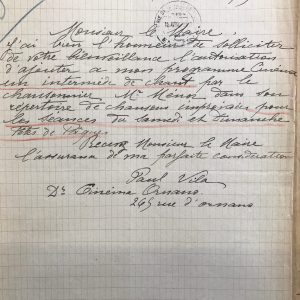 Monsieur le Maire
J'ai bien l'honneur de solliciter
de votre bienveillance l'autorisation
d'ajouter a mon programme Cinéma
un intermède de chant par le
chansonnier Mr dans son
repertoire de chansons imprimées pour
les séances du samedi et dimanche
fêtes de Pâques
Recevez Monsieur le Maire
l'assurance de ma parfaite considération
Paul Vila
Dr Cinéma Ornano
265 rue d'ornano